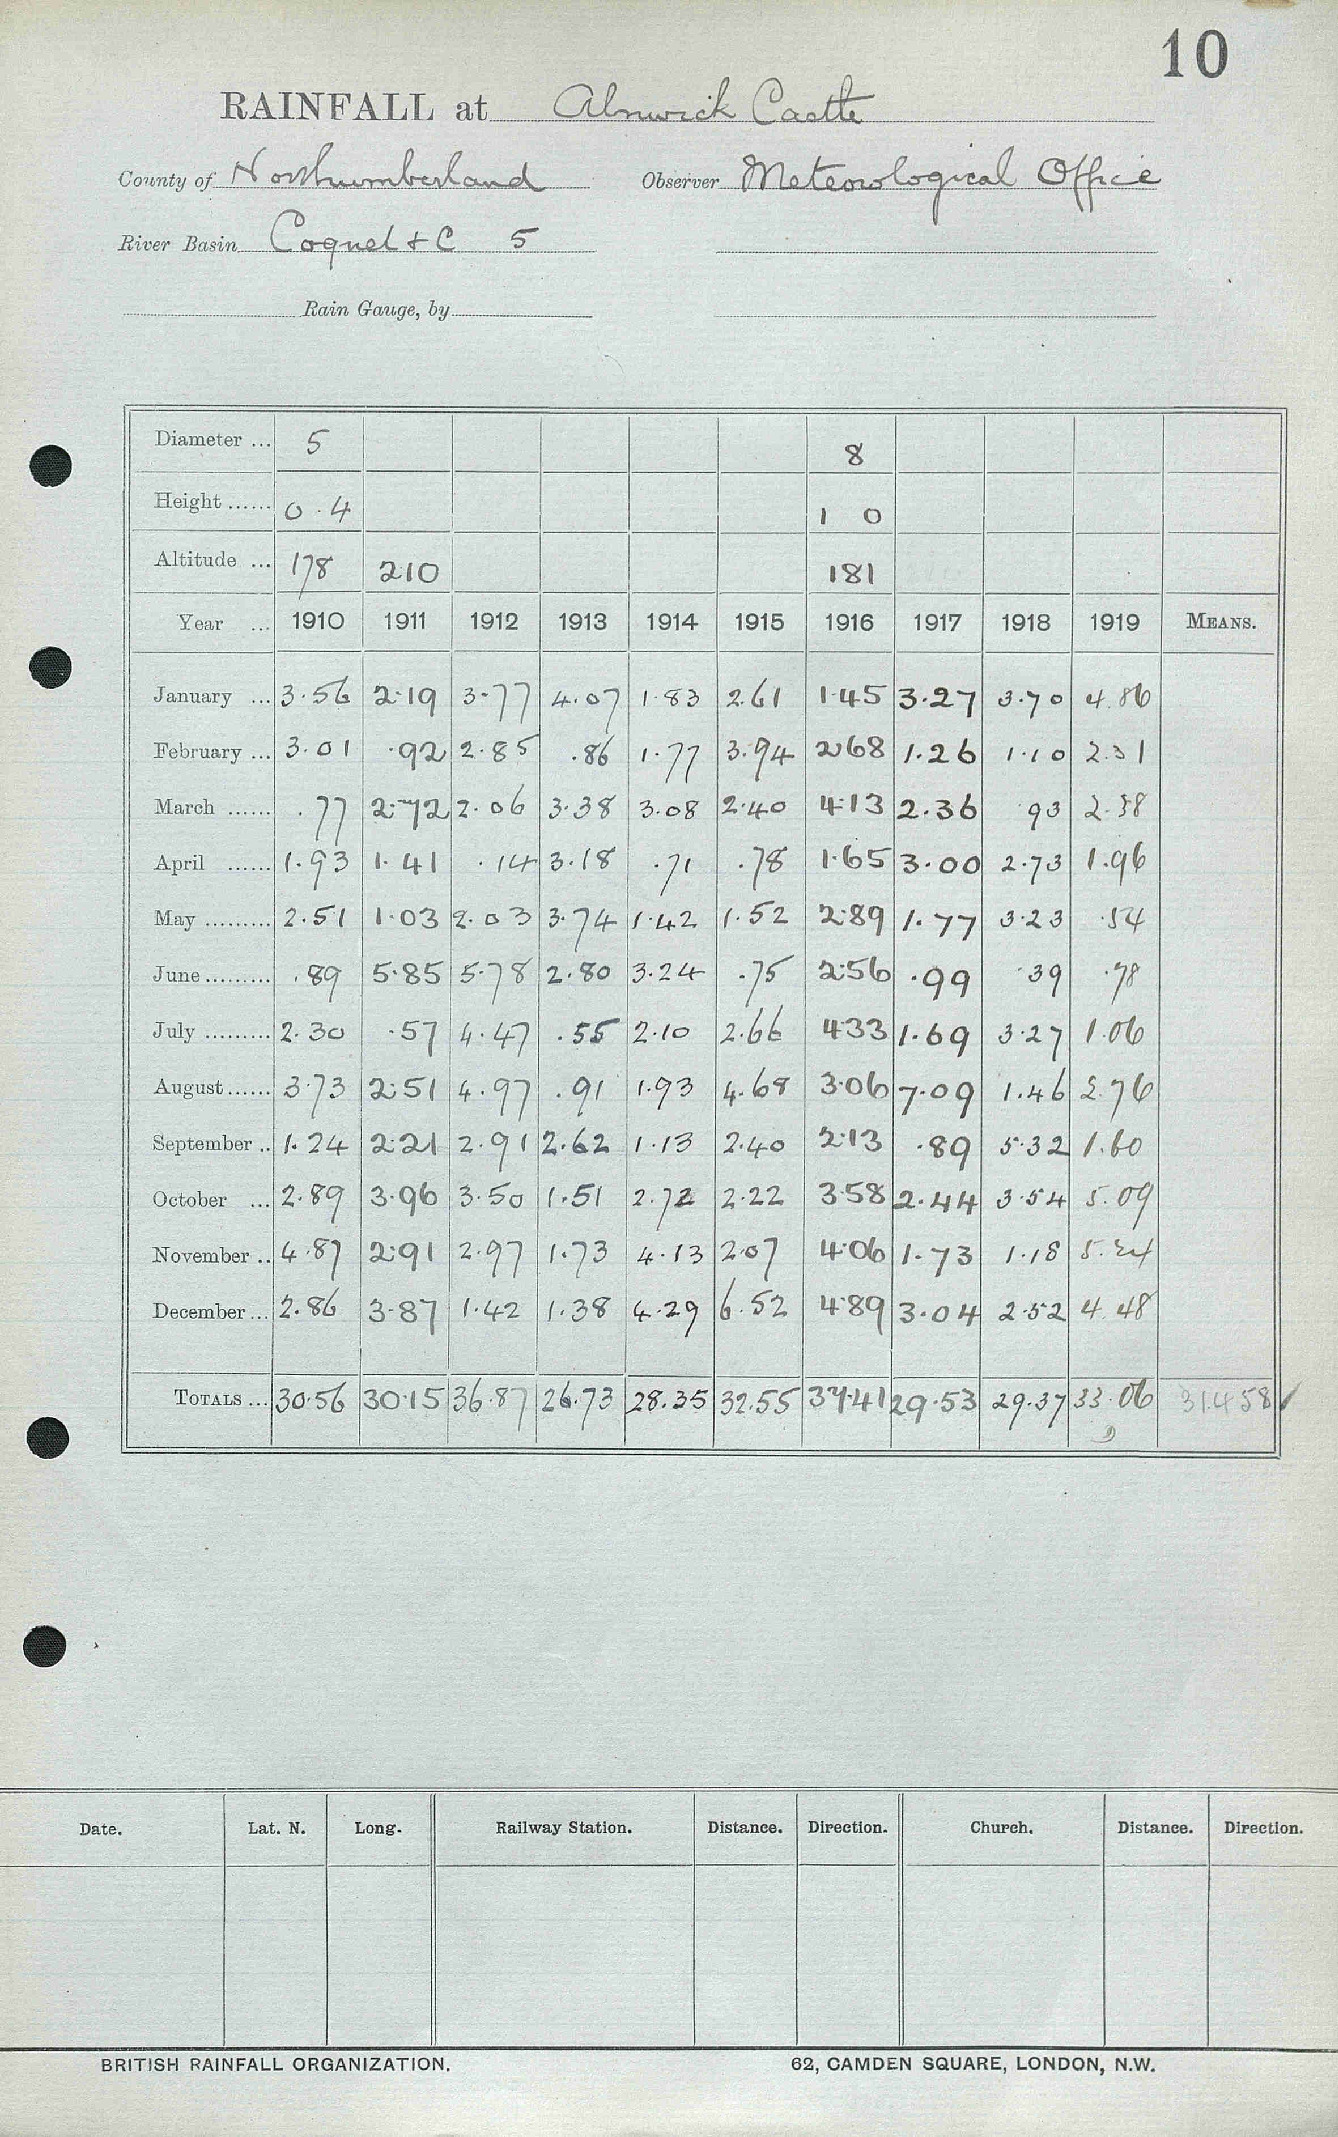 10
RAINFALL at Alnwick Castle
County of Northumberland Observer Meteorological Office
River Basin Coquet & C 5
Rain Gauge, by
Diameter ... 5 8
Height ...... 0.4 1 0
Altitude ... 178 210 181
Year ... 1910 1911 1912 1913 1914 1915 1916 1917 1918 1919 MEANS.
January ... 3.56 2.19 3.77 4.07 1.83 2.61 1.45 3.27 3.70 4.86
February ... 3.01 .92 2.85 .86 1.77 3.94 2.68 1.26 1.10 2.31
March ...... .77 2.72 2.06 3.38 3.08 2.40 4.13 2.36 .93 2.38
April ...... 1.93 1.41 .14 3.18 .71 .78 1.65 3.00 2.73 1.96
May ......... 2.51 1.03 2.03 3.74 1.42 1.52 2.89 1.77 3.23 .54
June ......... .89 5.85 5.78 2.80 3.24 .75 2.56 .99 .39 .78
July ......... 2.30 .57 4.47 .55 2.10 2.66 4.33 1.69 3.27 1.06
August ...... 3.73 2.51 4.97 .91 1.93 4.68 3.06 7.09 1.46 2.76
September .. 1.24 2.21 2.91 2.62 1.13 2.40 2.13 .89 5.32 1.60
October ... 2.89 3.96 3.50 1.51 2.72 2.22 3.58 2.44 3.54 5.09
November .. 4.87 2.91 2.97 1.73 4.13 2.07 4.06 1.73 1.18 5.24
December ... 2.86 3.87 1.42 1.38 4.29 6.52 4.89 3.04 2.52 4.48
TOTALS ... 30.56 30.15 36.87 26.73 28.35 32.55 37.41 29.53 29.37 33.06 31.458 ✓
Date. Lat. N. Long. Railway Station. Distance. Direction. Church. Distance. Direction.
BRITISH RAINFALL ORGANIZATION. 62, CAMDEN SQUARE, LONDON, N.W.